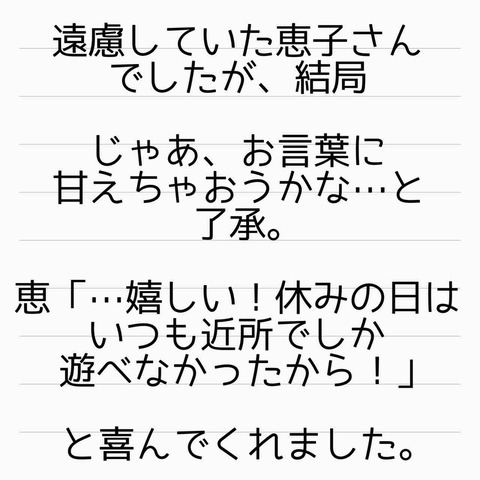 遠慮していた恵子さん
でしたが、結局
じゃあ、お言葉に
甘えちゃおうかな…と
了承。
恵「…嬉しい！休みの日は
いつも近所でしか
遊べなかったから！」
と喜んでくれました。